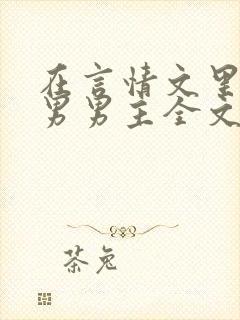 在言情文里
男男主全文
茶兔